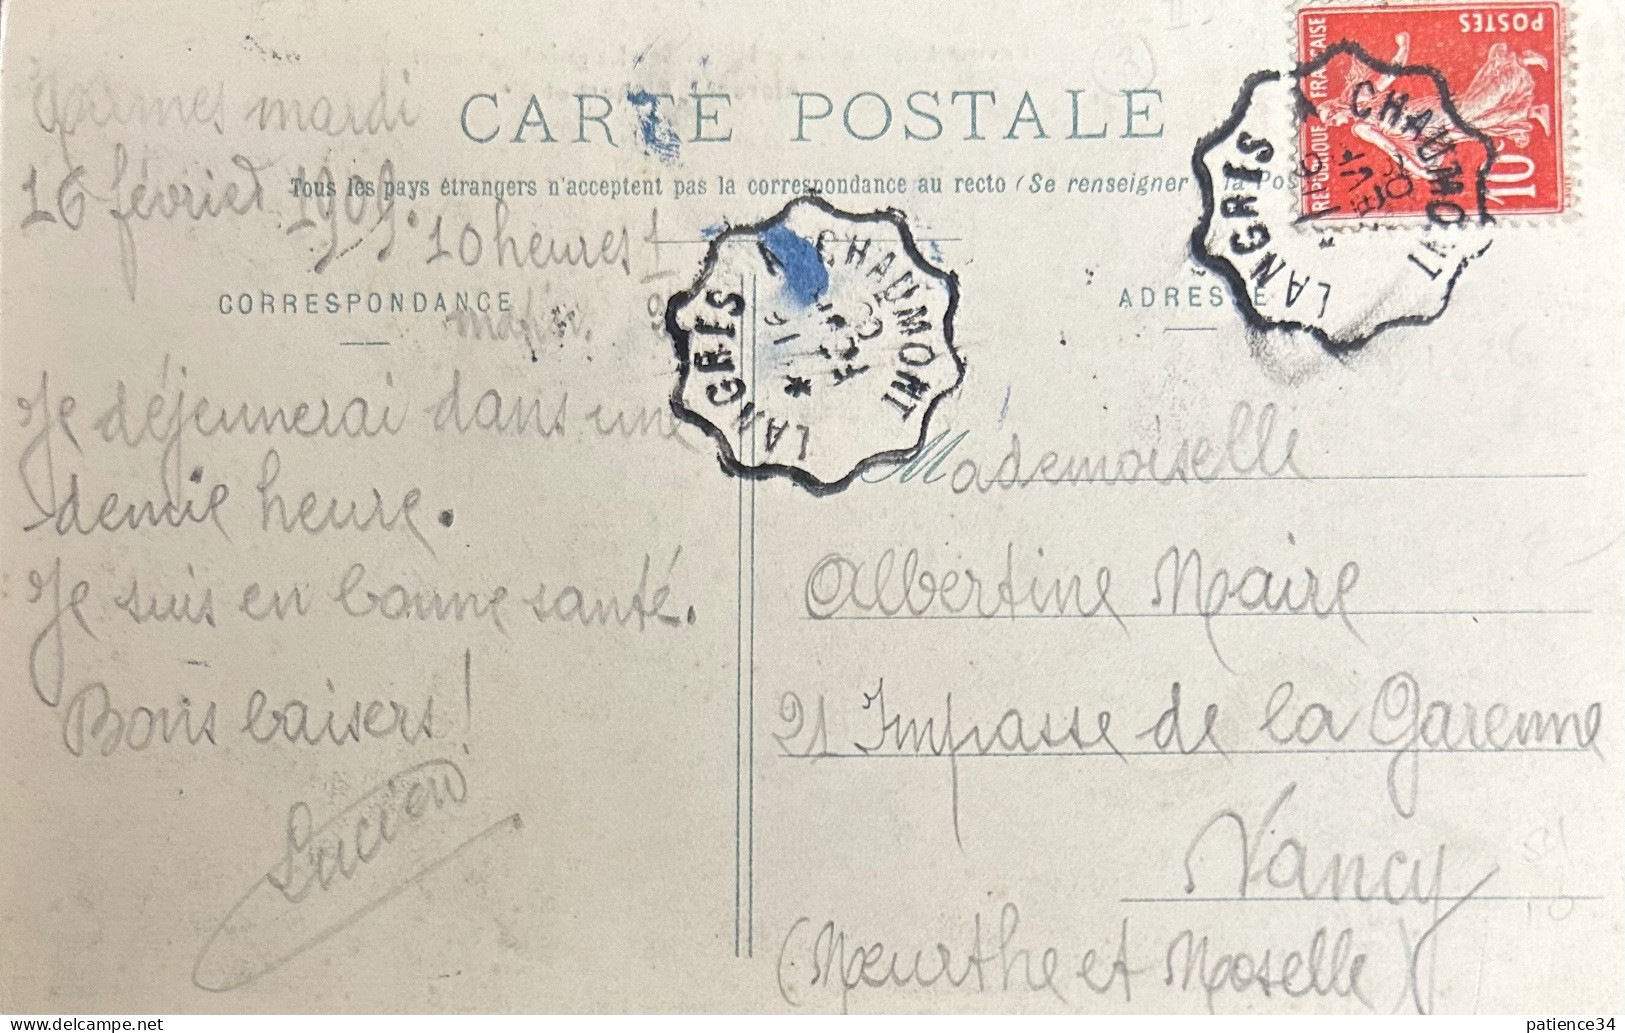 mardi
16 février 1909.
10 heures 1
matin.
CARTE POSTALE
Tous les pays étrangers n'acceptent pas la correspondance au recto (Se renseigner à la Pos
CORRESPONDANCE
ADRESSE
Je déjeunerai dans une
demie heure.
Je suis en bonne santé.
Bons baisers!
Lucien
Mademoiselle
Albertine Maire
21 Impasse de la Garenne
Nancy
(Meurthe et Moselle)
LANGRES A CHAUMONT
LANGRES A CHAUMONT
REPUBLIQUE FRANÇAISE
POSTES
10c
3
patience34